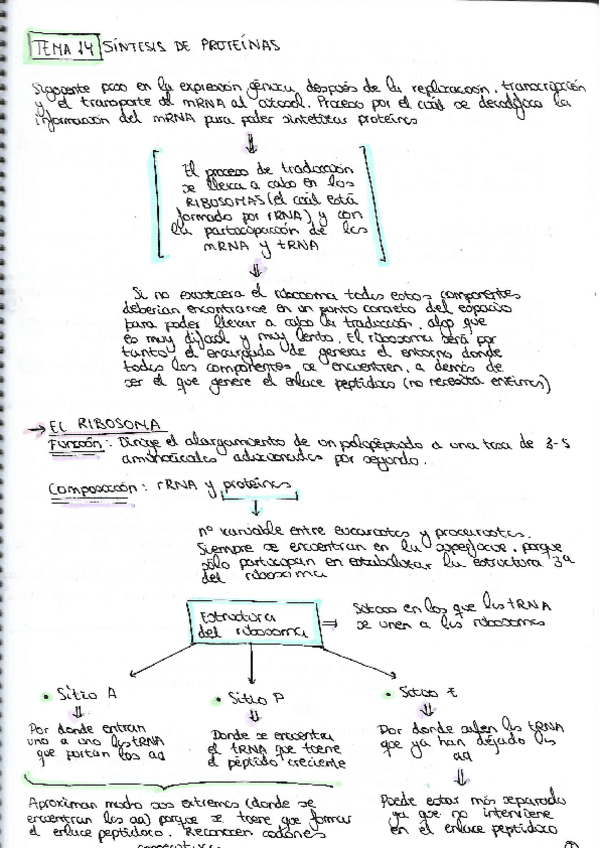 TEMA 14 SÍNTESIS DE PROTEÍNAS
Siguiente paso en la expresión génica, después de la replicación, transcripción
y el transporte del mRNA al citosol. Proceso por el cuál se decodifica la
información del mRNA para poder sintetizar proteínas
⇓
El proceso de traducción
se lleva a cabo en los
RIBOSOMAS (el cuál está
formado por rRNA) y con
la participación de los
mRNA y tRNA
⇓
Si no existiera el ribosoma todos estos componentes
deberían encontrarse en un punto concreto del espacio
para poder llevar a cabo la traducción, algo que
es muy difícil y muy lento. El ribosoma será por
tanto el encargado de generar el entorno donde
todos los componentes se encuentren, a demás de
ser el que genere el enlace peptídico (no necesita enzimas)
→ EL RIBOSOMA
Función: Dirige el alargamiento de un polipéptido a una tasa de 3-5
aminoácidos adicionados por segundo.
Composición: rRNA y proteínas
↓
nº variable entre eucariotas y procariotas.
Siempre se encuentran en la superficie, porque
sólo participan en estabilizar la estructura 3ª
del ribosoma
Estructura
del ribosoma ⇒ Sitios en los que los tRNA
se unen a los ribosomas
• Sitio A • Sitio P • Sitio E
⇓ ⇓ ⇓
Por donde entran
uno a uno los tRNA
que portan los aa
Donde se encuentra
el tRNA que tiene el
péptido creciente
Por donde salen los tRNA
que ya han dejado los
aa
⇓
Aproximan mucho sus extremos (donde se
encuentran los aa) porque se tiene que formar
el enlace peptídico. Reconocen codones
consecutivos
Puede estar más separado
ya que no interviene
en el enlace peptídico